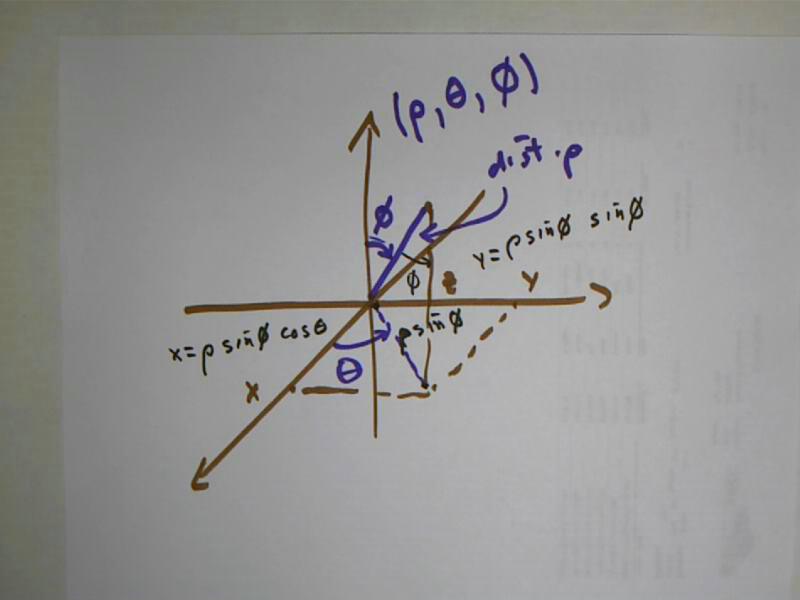 (ρ, θ, ϕ)
dist. ρ
ϕ
y = ρ sinϕ sinϕ
ϕ
z
y
x = ρ sinϕ cosθ
ρ sinϕ
θ
x